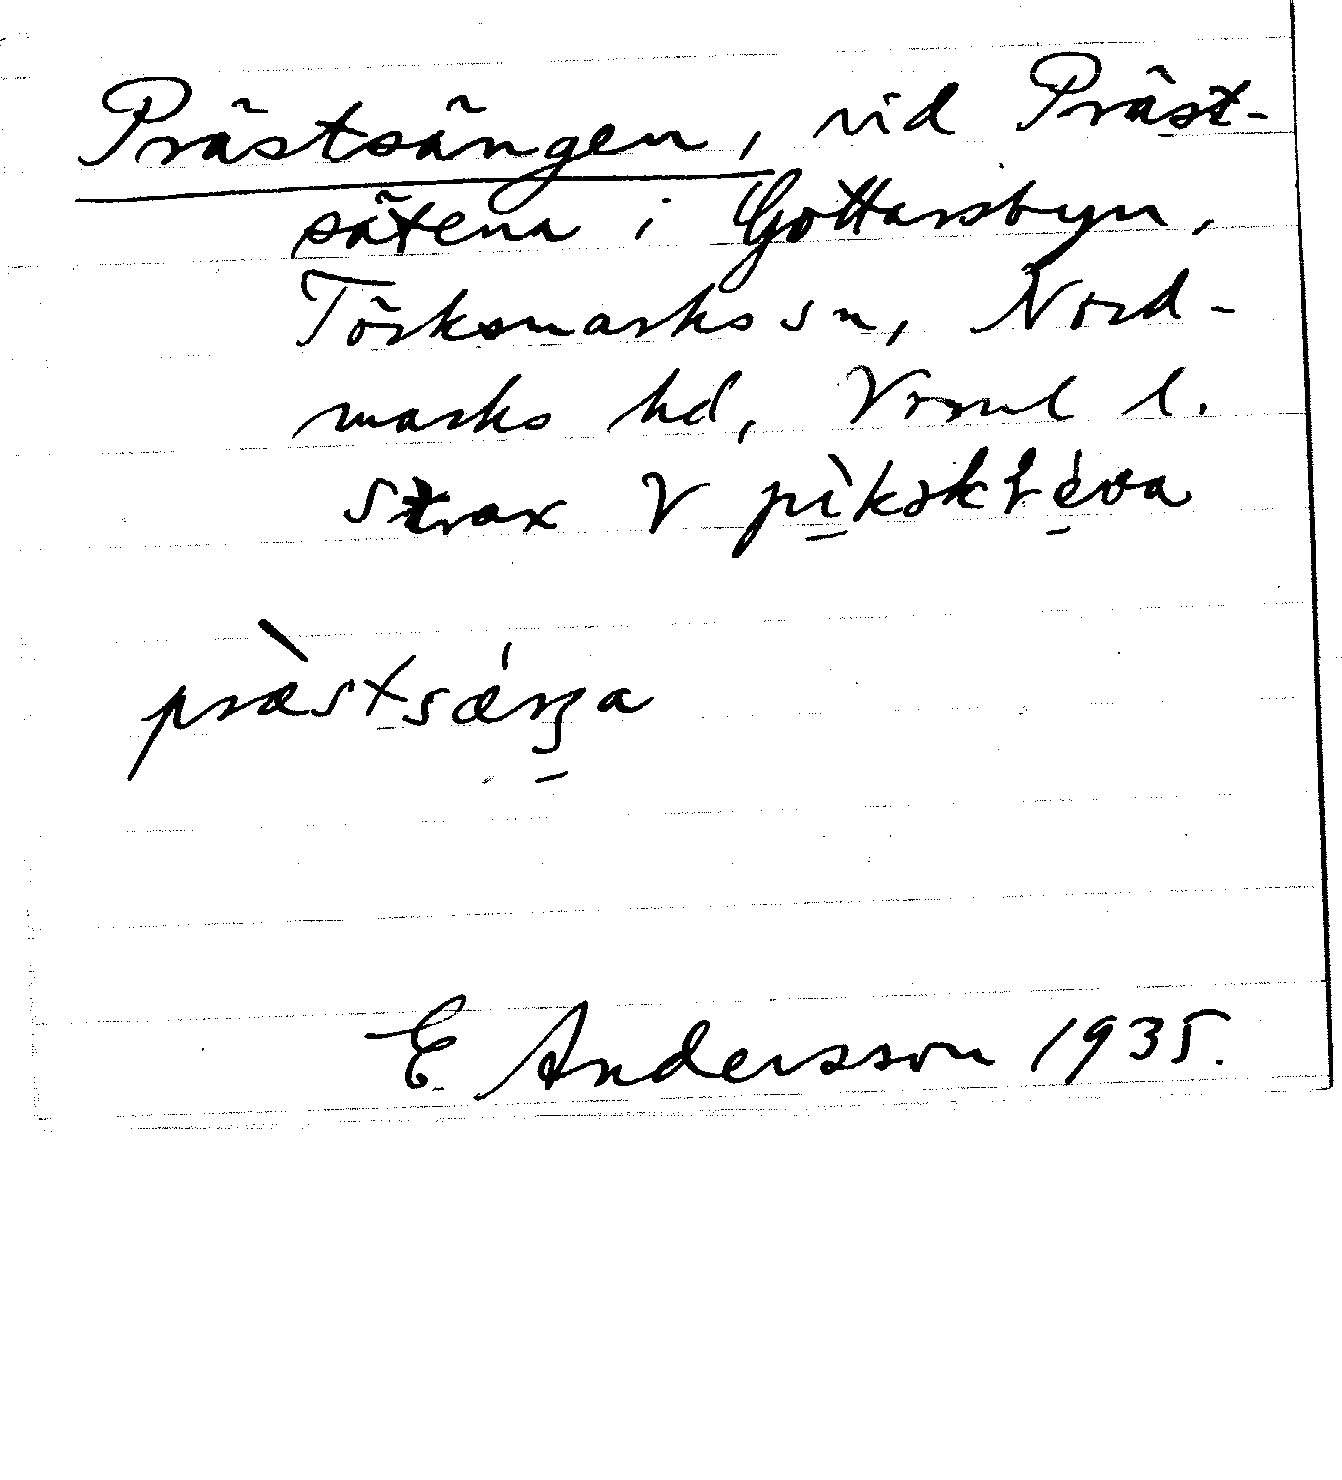 Prästsängen, vid Präst-
sätena i Gottarsbyn,
Törksmarks sn, Nord-
marks hd, Vrml l.
Strax V pìkskłéva
præ̀stsǽŋa
E Andersson 1935.